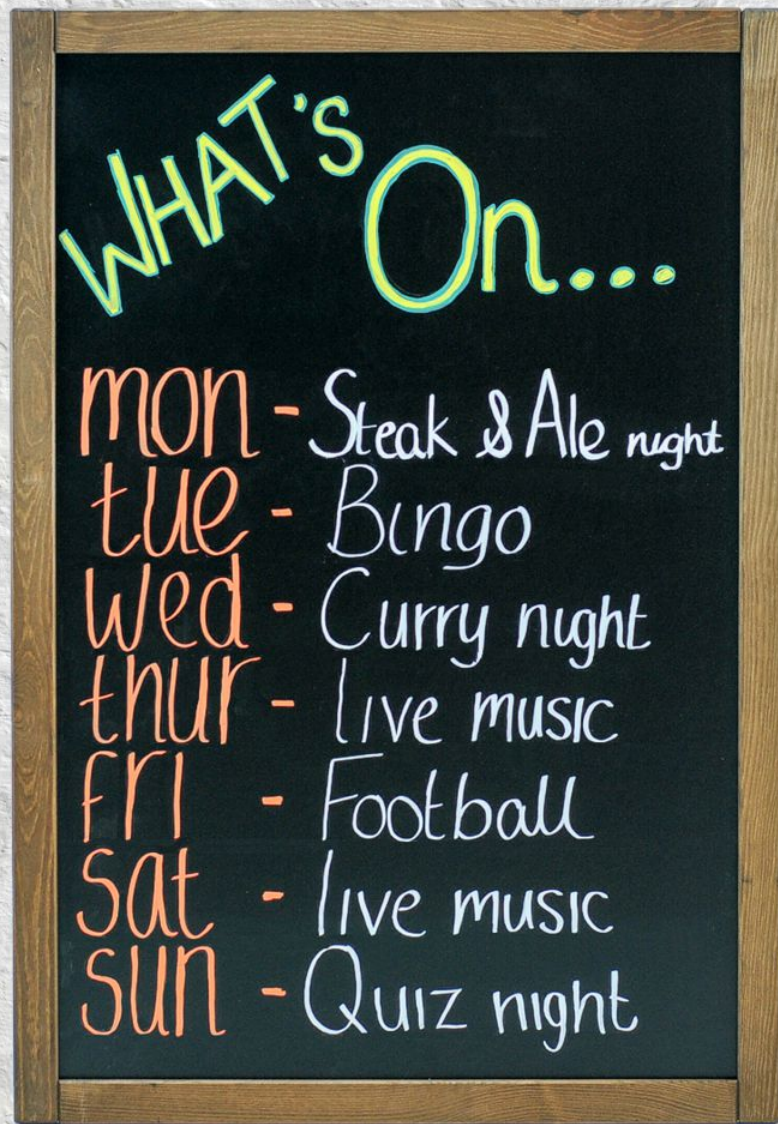 WHAT'S On...
mon - Steak & Ale night
tue - Bingo
wed - Curry night
thur - live music
fri - Football
sat - live music
sun - Quiz night